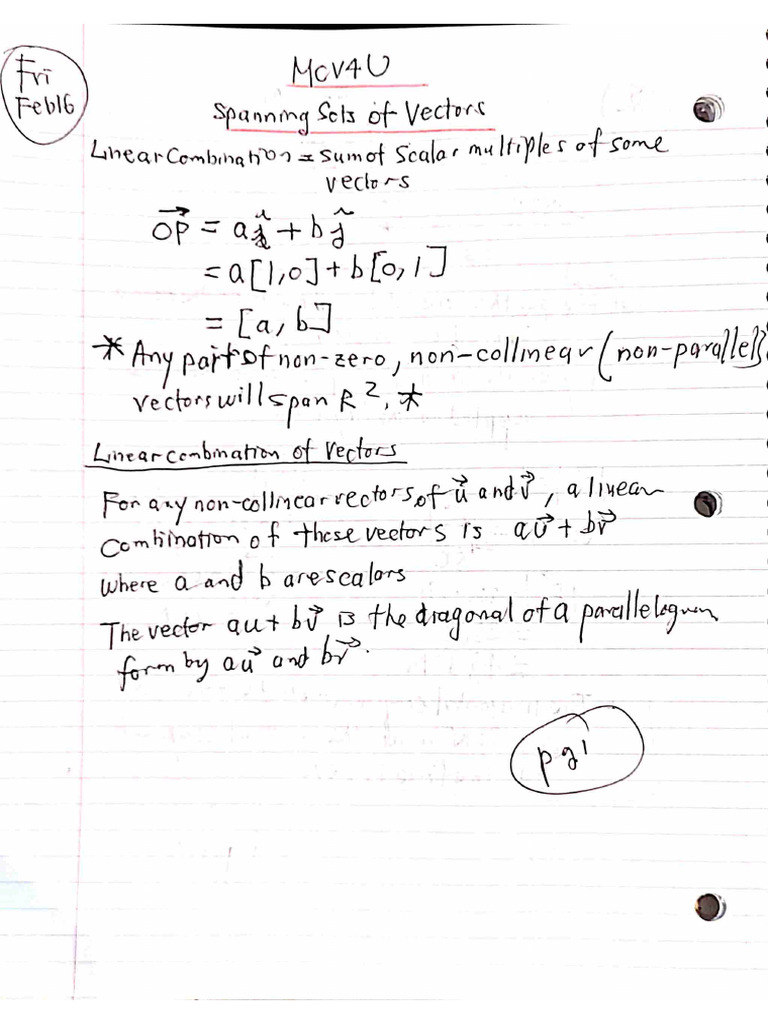 Fri
Feb16
MCV4U
Spanning Sets of Vectors
Linear Combination = sum of scalar multiples of some
vectors
OP⃗ = aî + bĵ
= a[1,0] + b[0,1]
= [a, b]
* Any part of non-zero, non-collinear (non-parallel)
vectors will span R², *
Linear combination of Vectors
For any non-collinear vectors of u⃗ and v⃗, a linear
combination of these vectors is au⃗ + bv⃗
where a and b are scalars
The vector au + bv⃗ is the diagonal of a parallelogram
form by au⃗ and bv⃗.
pg1